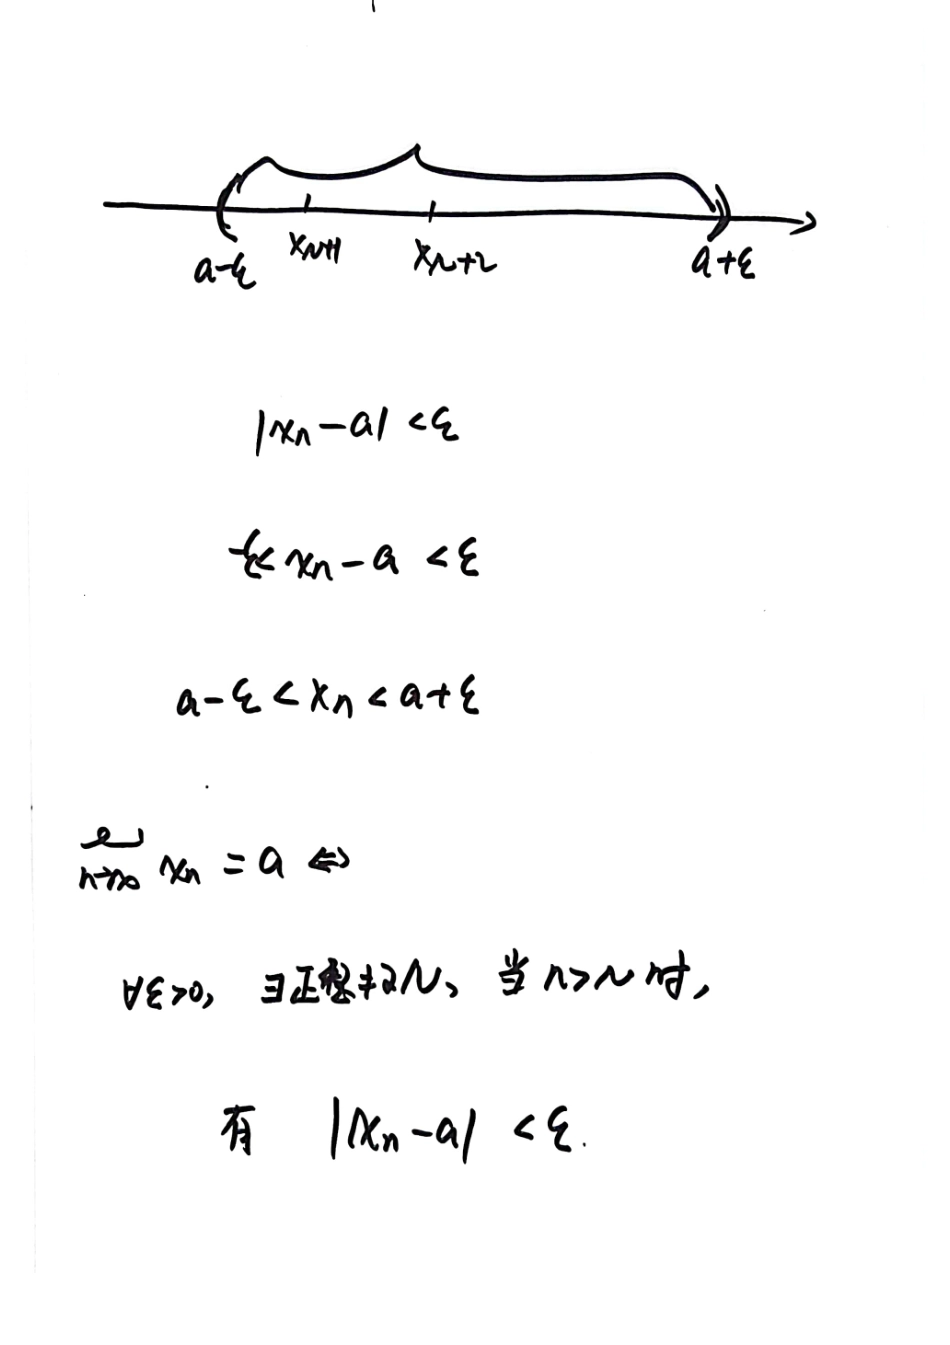 a-ε x_{N+1} x_{N+2} a+ε
|x_n - a| < ε
-ε < x_n - a < ε
a - ε < x_n < a + ε
lim_{n→∞} x_n = a ⇔
∀ε>0, ∃正整数N, 当 n>N 时,
有 |x_n - a| < ε.